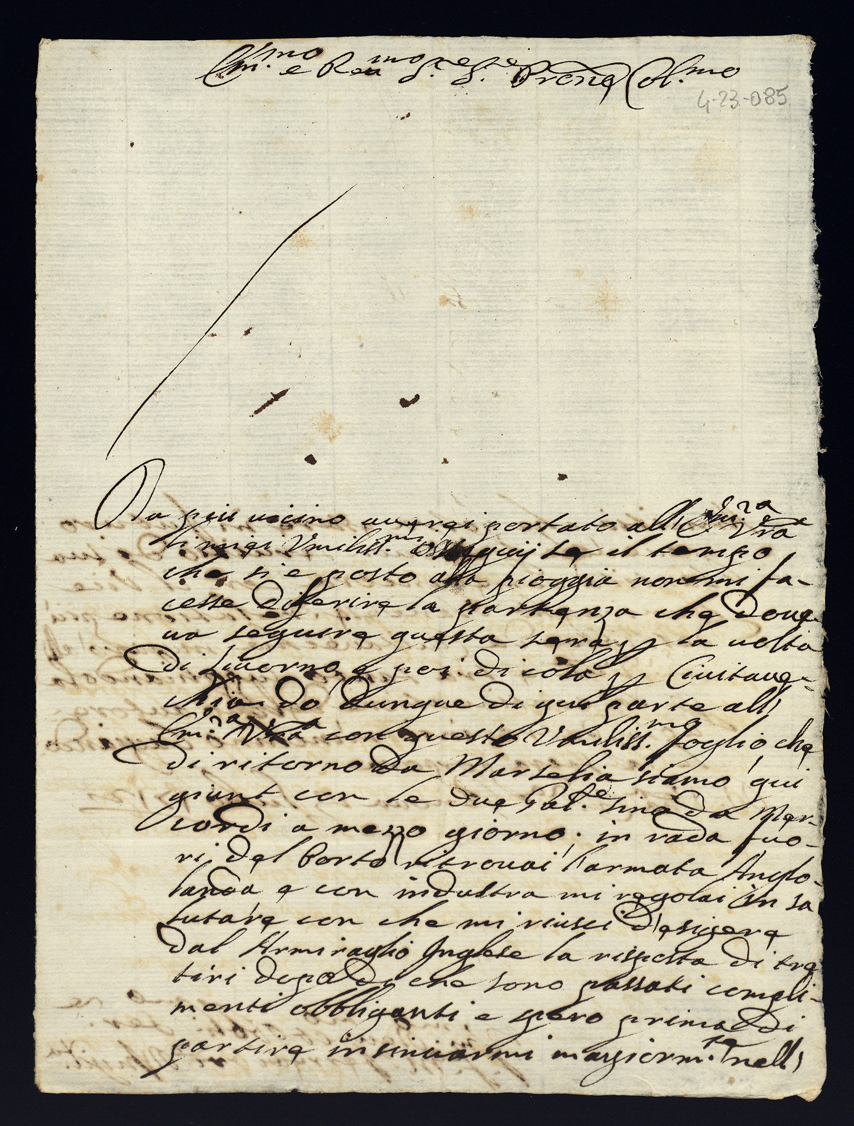 Em.mo e Re.mo S.re S.re Prone Col.mo
4-23-085
Da più vicino averei portato all' Em.za Vra
li miei Umiliss.mi ossequij se il tempo
che si è posto alla pioggia non mi fa-
cesse diferire la partenza che dove-
va seguire questa sera p la volta
di Livorno, e poi di colà p Civitave-
chia. Do dunque di qui parte all'
Em.za Vra con questo Umiliss.mo foglio, che
di ritorno da Marselia siamo qui
giunt con le due Gal.re sino da Mer-
cordi a mezzo giorno; in rada fuo-
ri del Porto ritrovai l'armata Anglo-
landa e con industra mi regolai in sa
lutare con che mi riuscì d'esigere
dal Armiraglio Inglese la risposta di tre
tiri dopo di che sono passati compli-
menti obbliganti e spero prima di
partire insinuarmi magiorm.te nell'